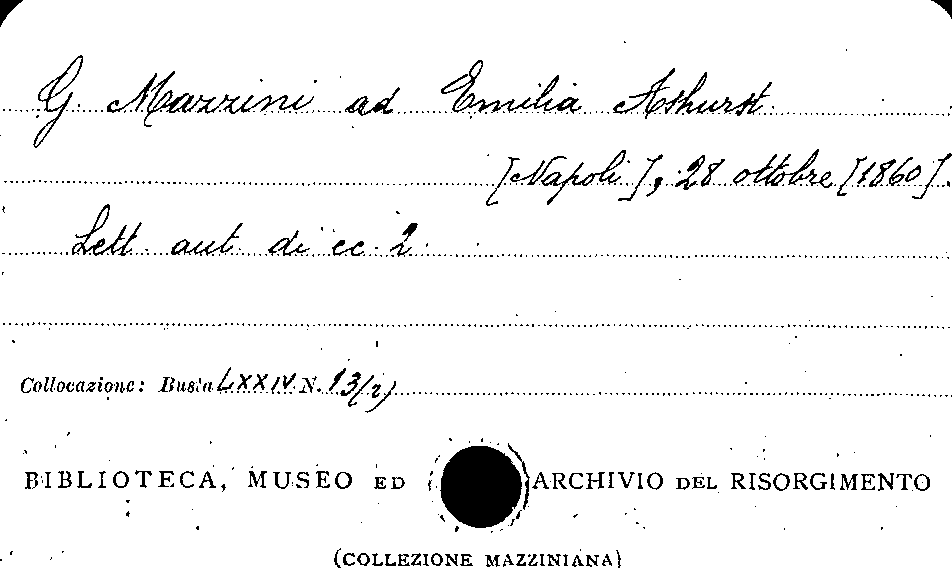 G. Mazzini ad Emilia Ashurst.
[Napoli], 28 ottobre [1860].
Lett. aut. di cc. 2.
Collocazione: Busta LXXIV N. 13(2)
BIBLIOTECA, MUSEO ED ARCHIVIO DEL RISORGIMENTO
(COLLEZIONE MAZZINIANA)